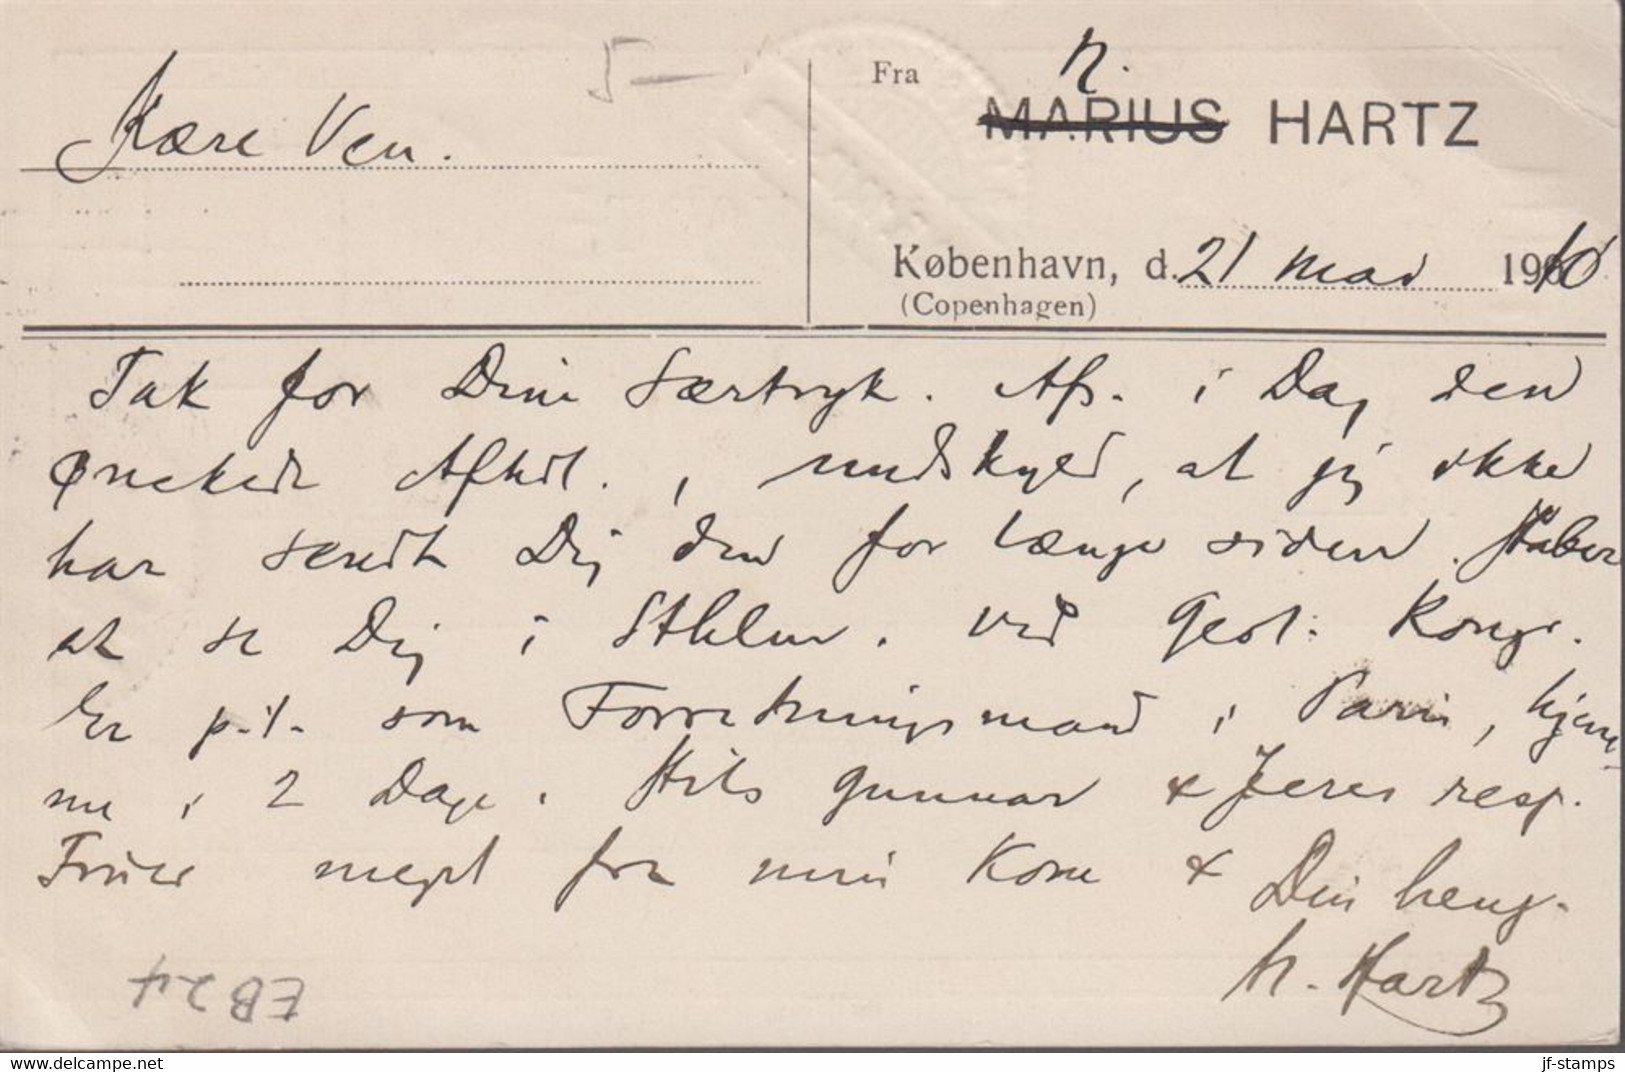 5—
Fra N.
MARIUS HARTZ
Kære Ven.
København, d. 21 Maj 1910
(Copenhagen)
Tak for Dine Særtryk. Afs. i Dag den
ønskede Afhdl., undskyld, at jeg ikke
har sendt Dig den for længe siden. Haaber
at se Dig i Sthlm. ved Geol. Kongr.
Er p.t. som Forretningsmand i Paris, hjem-
me i 2 Dage. Hils Gunnar & Jeres resp.
Fruer meget fra min Kone & Din heng.
N. Hartz
EB 24
www.delcampe.net
jf-stamps